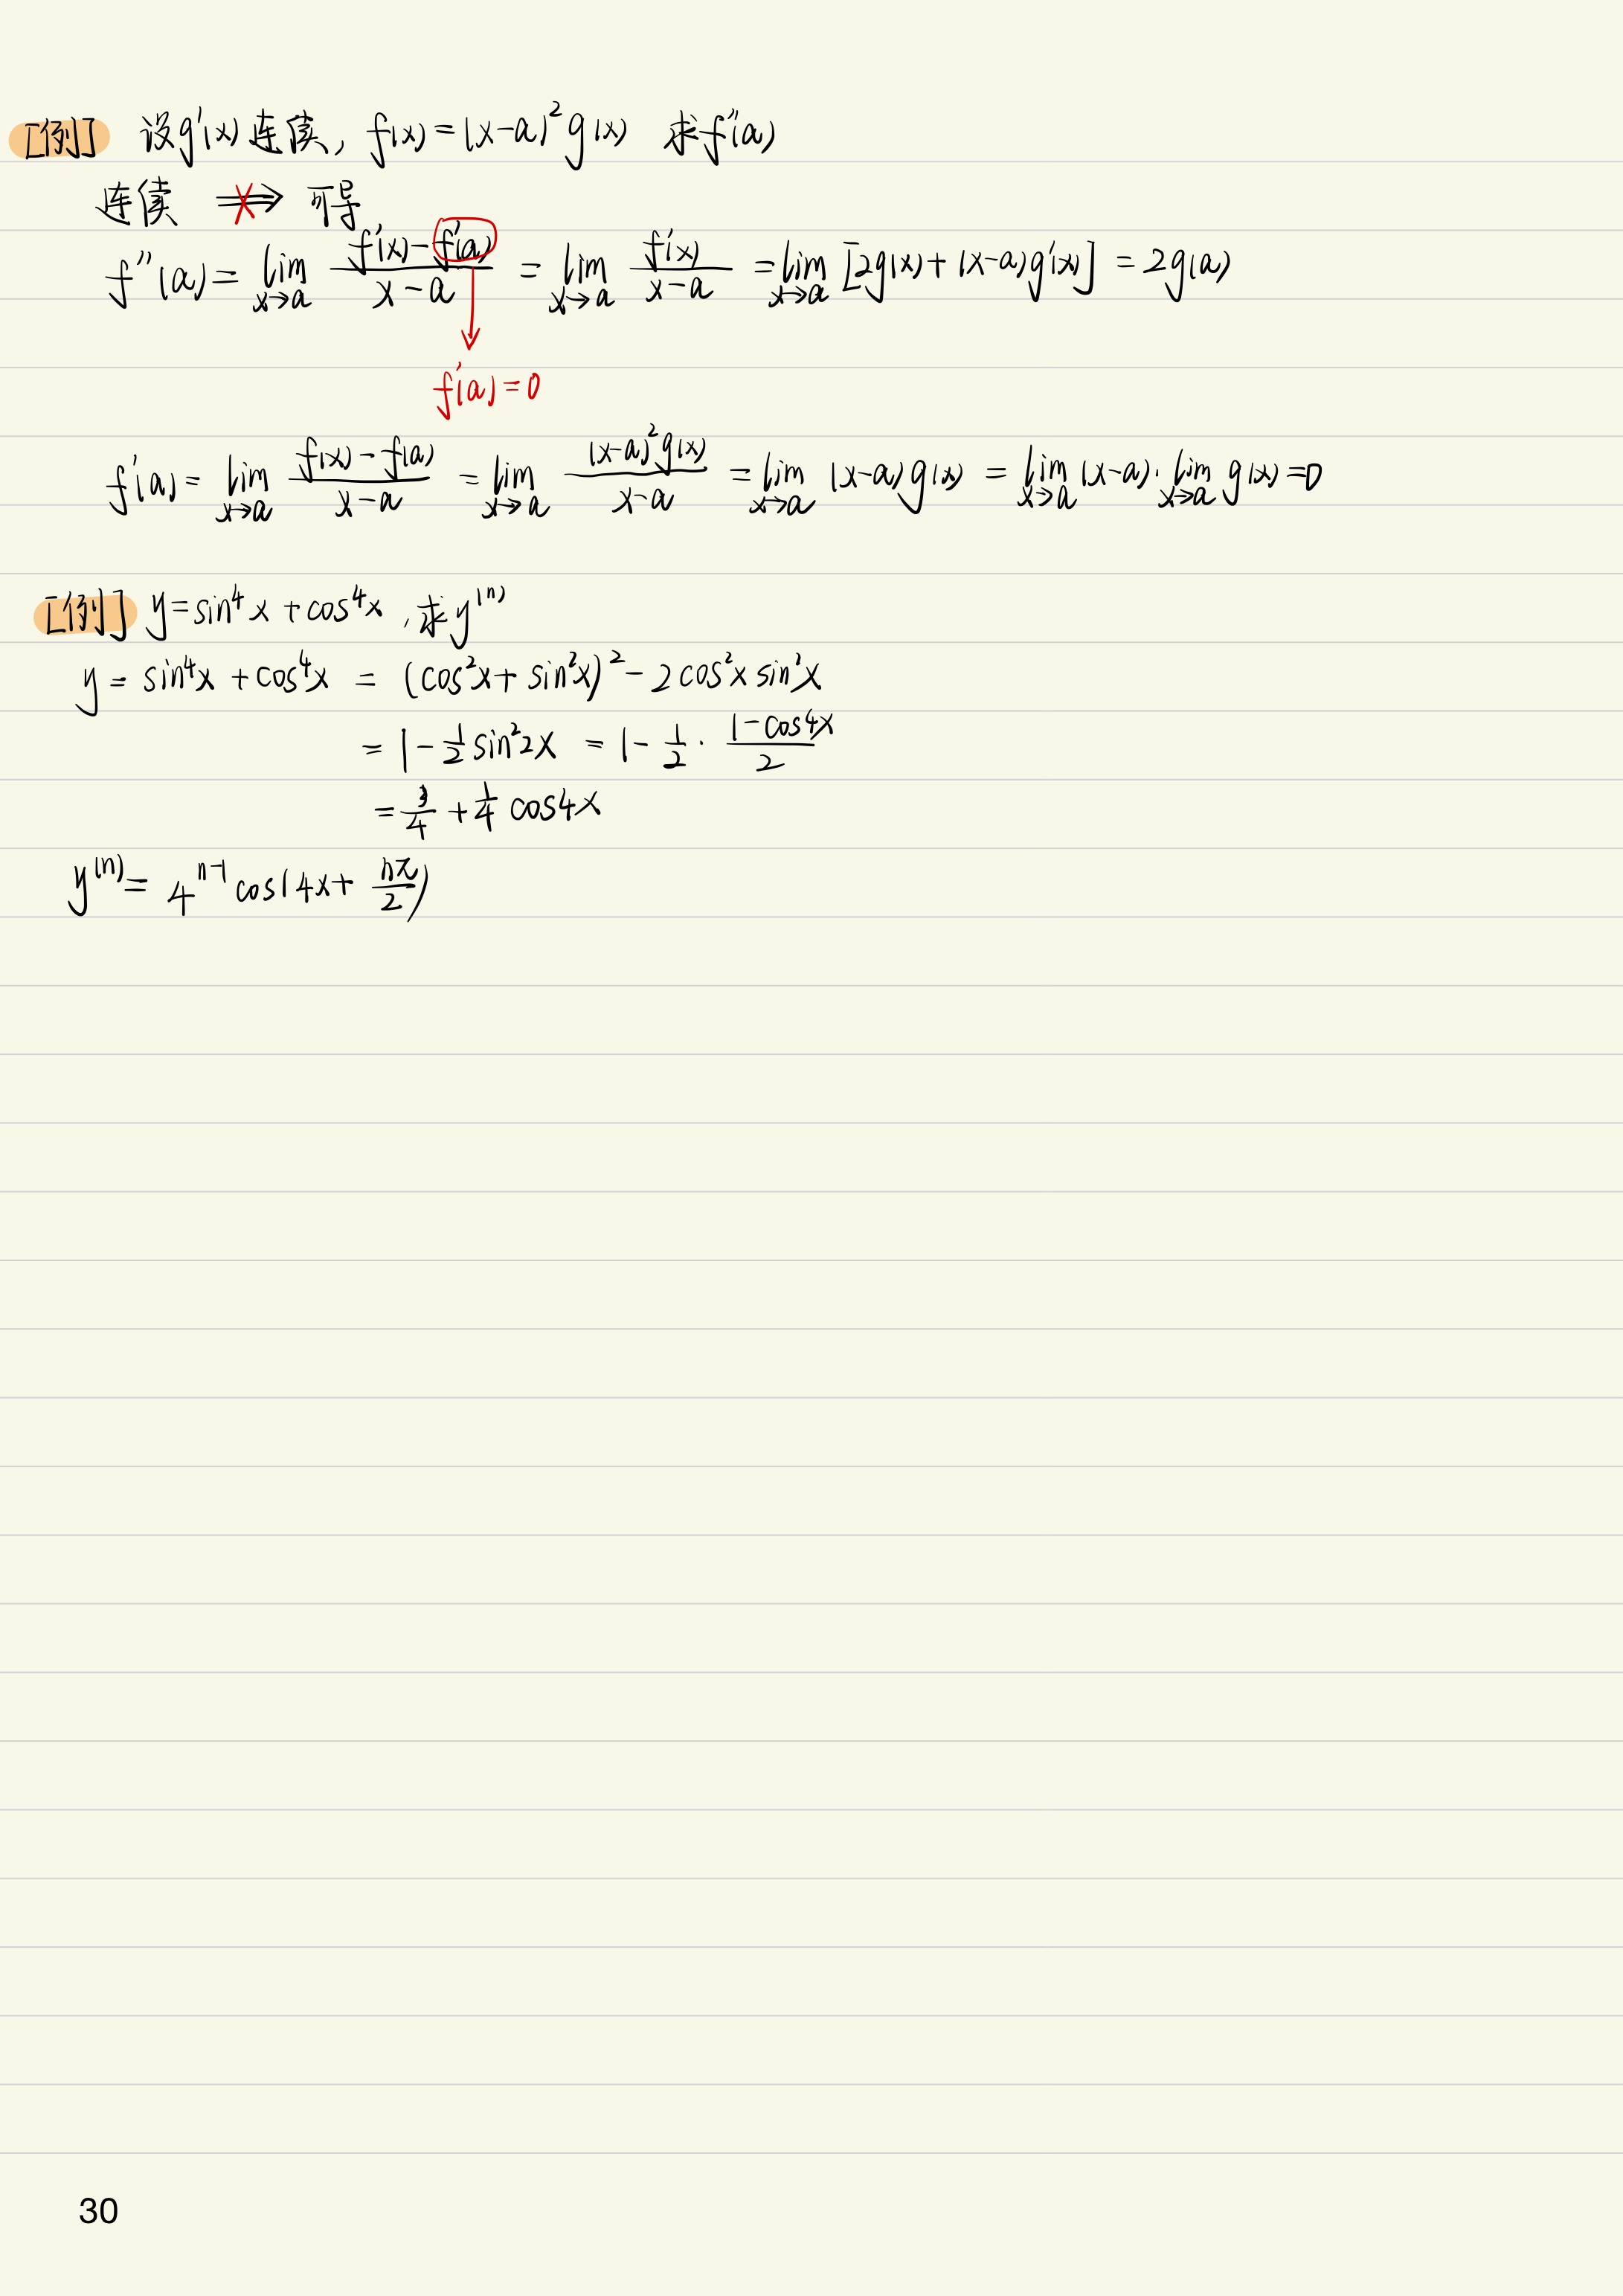 [例] 设g'(x)连续, f(x)=(x-a)²g(x) 求f''(a)
连续 ⇏ 可导
f''(a)= lim_{x→a} \frac{f'(x)-f'(a)}{x-a} = lim_{x→a} \frac{f'(x)}{x-a} = lim_{x→a} [2g(x)+(x-a)g'(x)] = 2g(a)
f'(a)=0
f'(a)= lim_{x→a} \frac{f(x)-f(a)}{x-a} = lim_{x→a} \frac{(x-a)²g(x)}{x-a} = lim_{x→a} (x-a)g(x) = lim_{x→a} (x-a)· lim_{x→a} g(x)=0
[例] y=sin⁴x+cos⁴x ,求y⁽ⁿ⁾
y= sin⁴x+cos⁴x = (cos²x+sin²x)²-2cos²x sin²x
= 1-\frac{1}{2}sin²2x = 1-\frac{1}{2}·\frac{1-cos4x}{2}
= \frac{3}{4}+\frac{1}{4}cos4x
y⁽ⁿ⁾= 4ⁿ⁻¹cos(4x+\frac{nπ}{2})
30